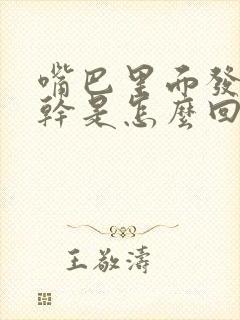 嘴巴里面發
幹是怎麼回
王敬濤